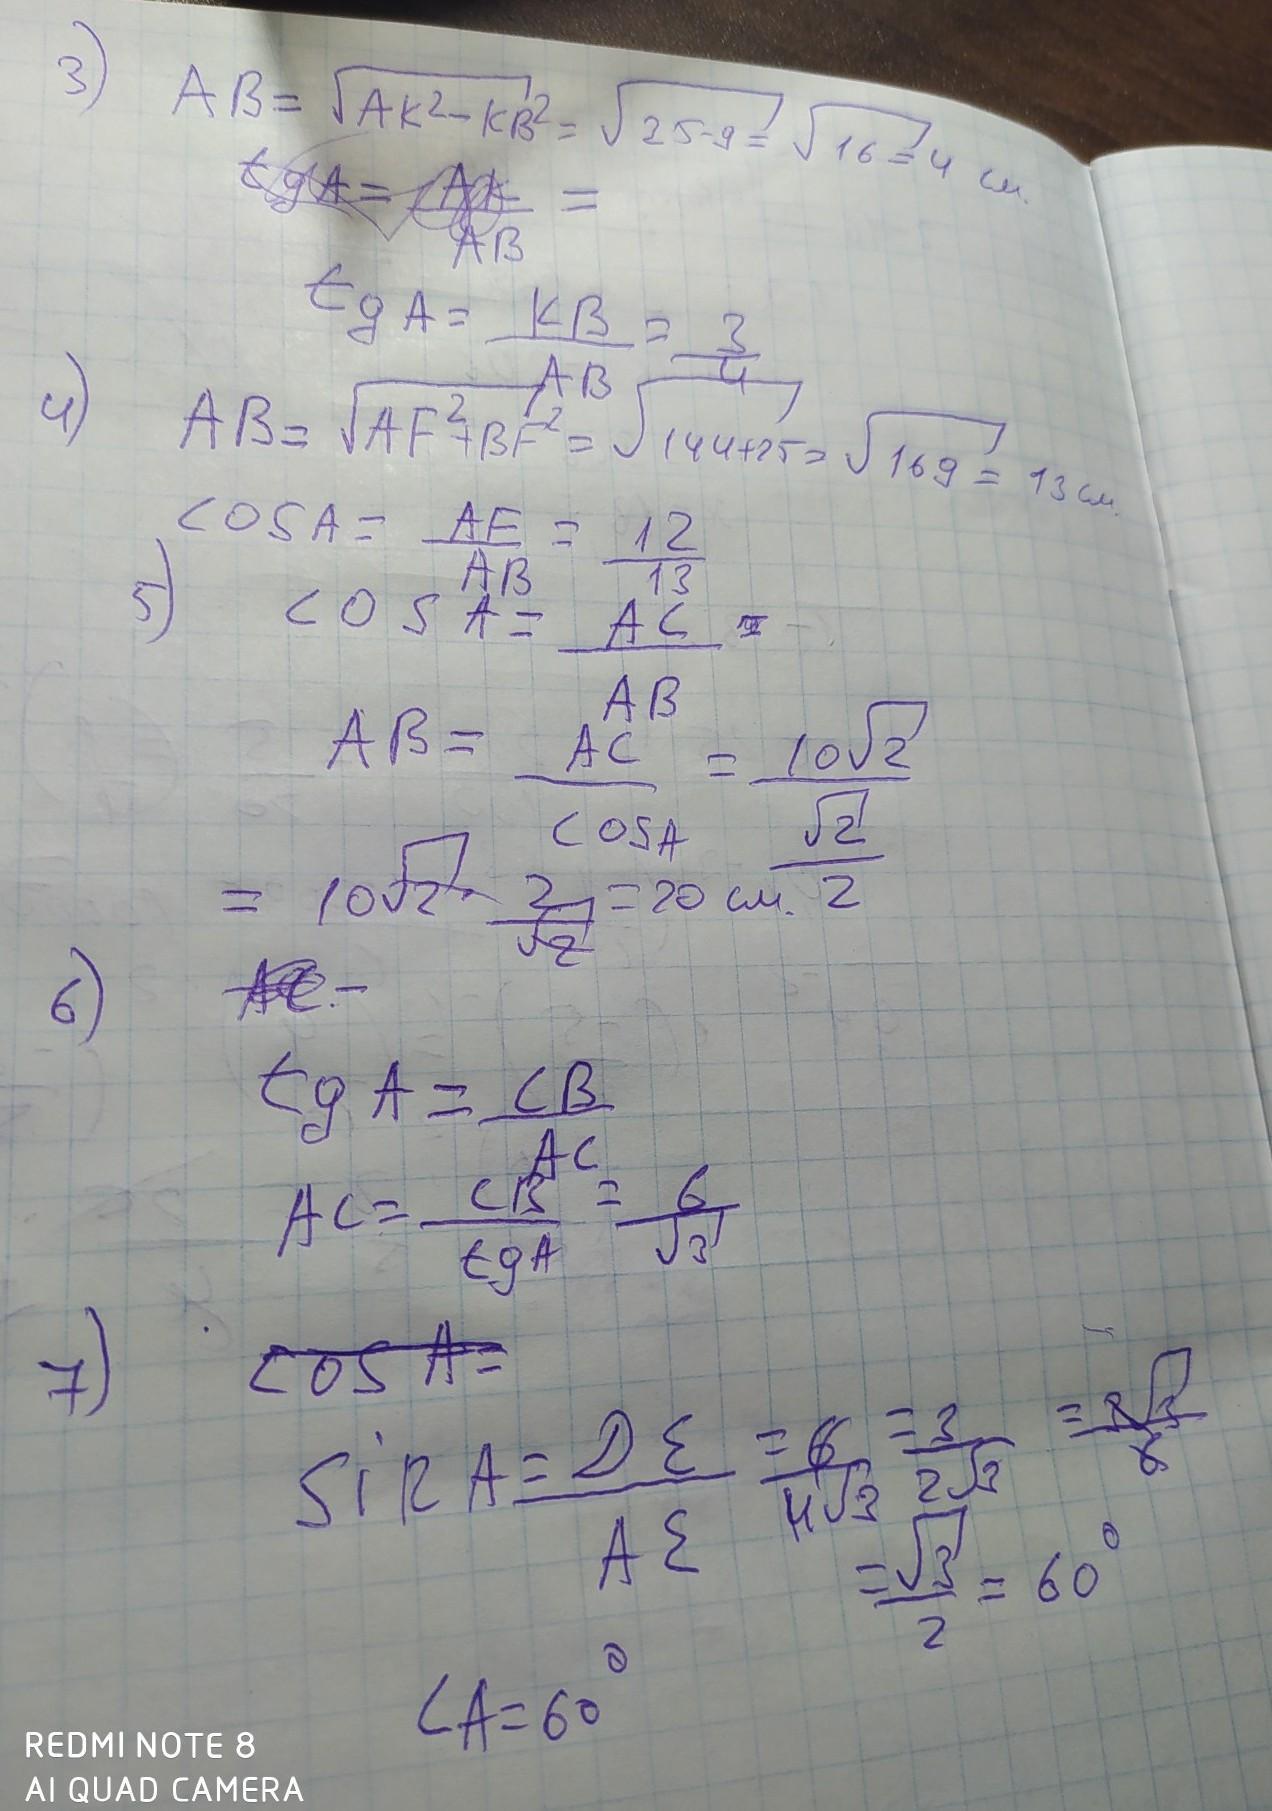 3) AB = √AK² - KB² = √25-9 = √16 = 4 см.
tgA = AK/AB =
tg A = KB/AB = 3/4
4) AB = √AF² + BF² = √144+25 = √169 = 13 см.
cos A = AF/AB = 12/13
5) cos A = AC/AB =
AB = AC/cos A = 10√2/(√2/2)
= 10√2 · 2/√2 = 20 см.
6) AC -
tg A = CB/AC
AC = CB/tgA = 6/√3
7) cos A =
sin A = DE/AE = 6/4√3 = 3/2√3 = 3√3/6
= √3/2 = 60°
∠A = 60°
REDMI NOTE 8
AI QUAD CAMERA